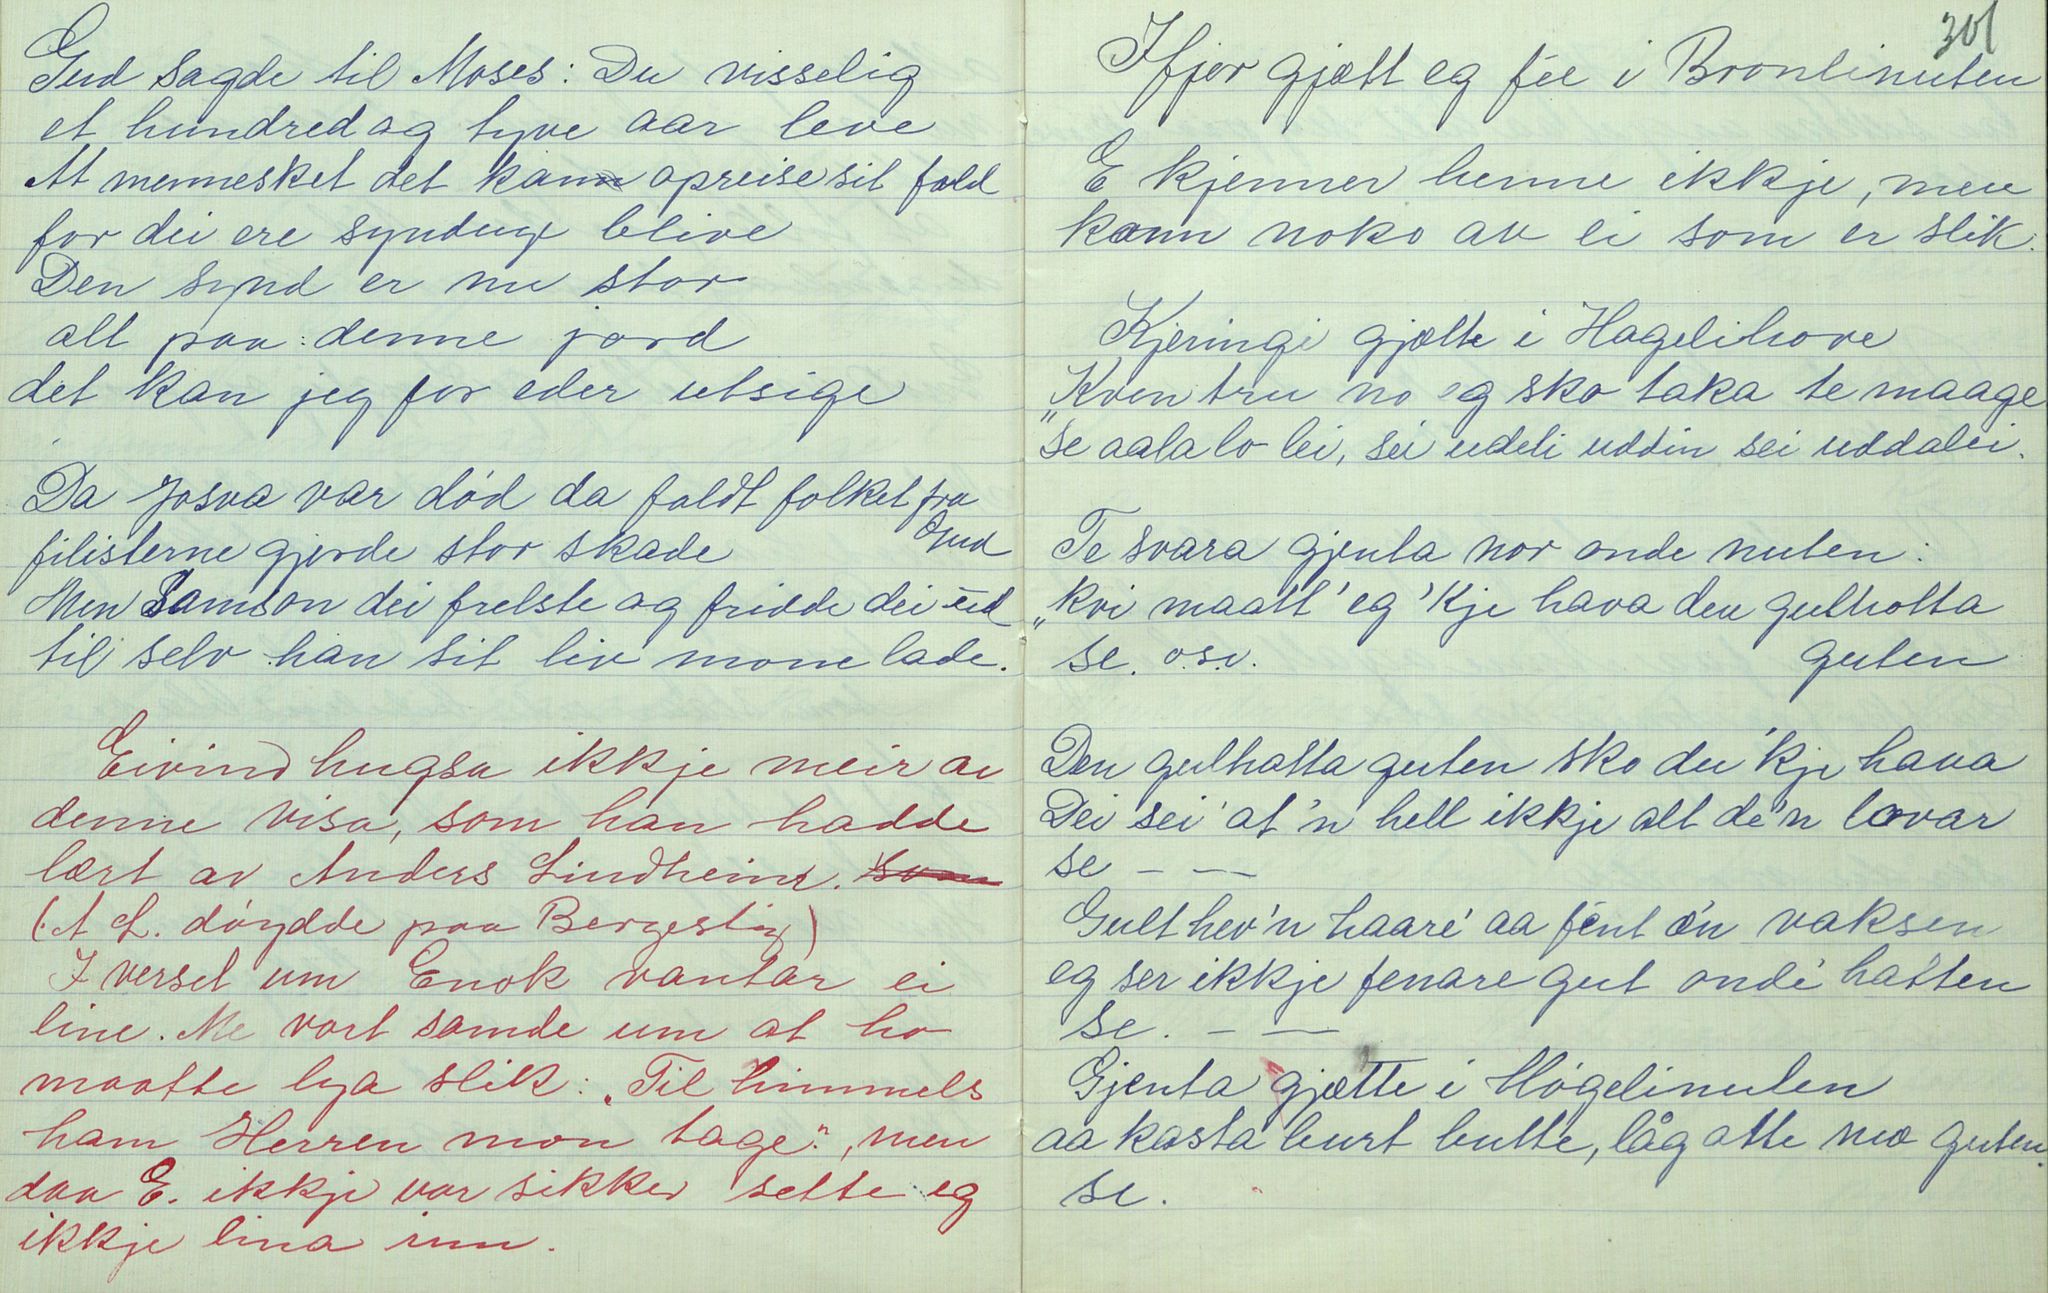 Gud sagde til Moses: Du visselig
et hundred og tyve aar leve
At mennesket det kann opreise sit fald
for dei ere syndige blive
Den synd er nu stor
alt paa denne jord
det kan jeg for eder utsige
Da Josva var död da faldt folket fra
Gud
filisterne gjorde stor skade
Men Samson dei frelste og fridde dei ud
til selv han sit liv mone lade.
Eivind hugsa ikkje meir av
denne visa, som han hadde
lært av Anders Lindheim. som
(A L. döydde paa Bergestig)
I verset um Enok vantar ei
line. Me vort samde um at ho
maatte lya slik: "Til himmels
ham Herren mon tage", men
daa E. ikkje var sikker sette eg
ikkje lina inn.
301
Ifjor gjætt eg fée i Bronlinuten
E kjenner henne ikkje, men
kann noko av ei som er slik.
Kjeringi gjætte i Hagelihove
"Kven tru no eg sko taka te maage
se aala lo lei, sei udeli uddin sei uddalei.
Te svara gjenta nor onde nuten:
"kvi maatt' eg 'kje hava den gulhatta
guten
se. o.s.v.
Den gulhatta guten sko du 'kje hava
Dei sei' at 'n hell ikkje alt de'n lovar
se — —
Gult hev'n haare' aa fént é'n vaksen
eg ser ikkje fenare gut onde' hatten
se. — —
Gjenta gjætte i Högelinuten
aa kasta burt butte, låg atte mæ guten.
se.